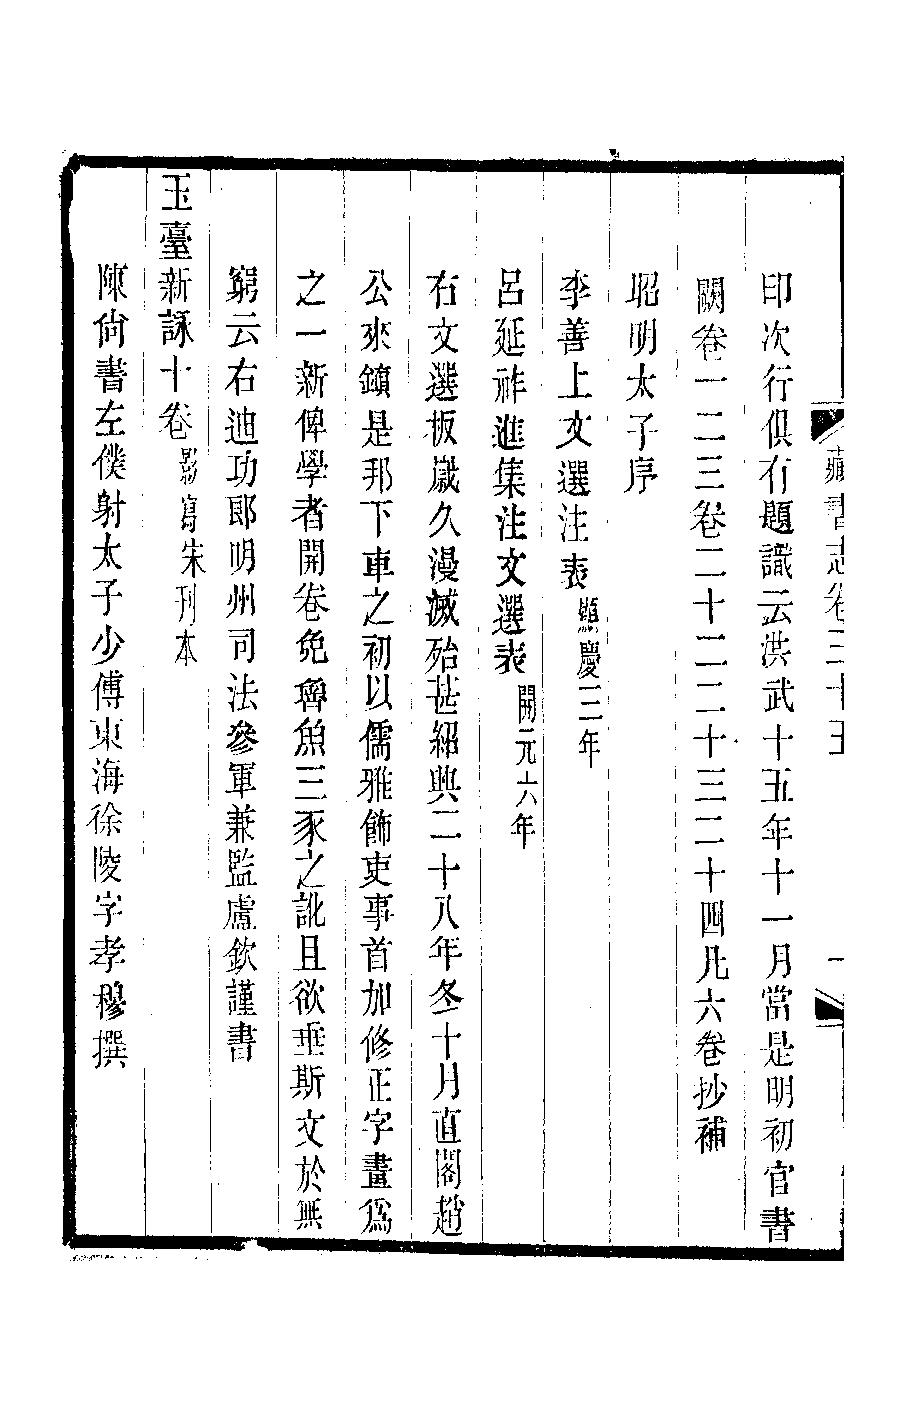 藏書志卷三十五
一
印次行俱有題識云洪武十五年十一月當是明初官書
闕卷一二三卷二十二二十三二十四凡六卷抄補
昭明太子序
李善上文選注表顯慶三年
呂延祚進集注文選表開元六年
右文選板歲久漫滅殆甚紹興二十八年冬十月直閣趙
公來鎮是邦下車之初以儒雅飾吏事首加修正字畫爲
之一新俾學者開卷免魯魚三豕之訛且欲垂斯文於無
窮云右迪功郎明州司法參軍兼監盧欽謹書
玉臺新詠十卷影寫宋刊本
陳尙書左僕射太子少傅東海徐陵字孝穆撰